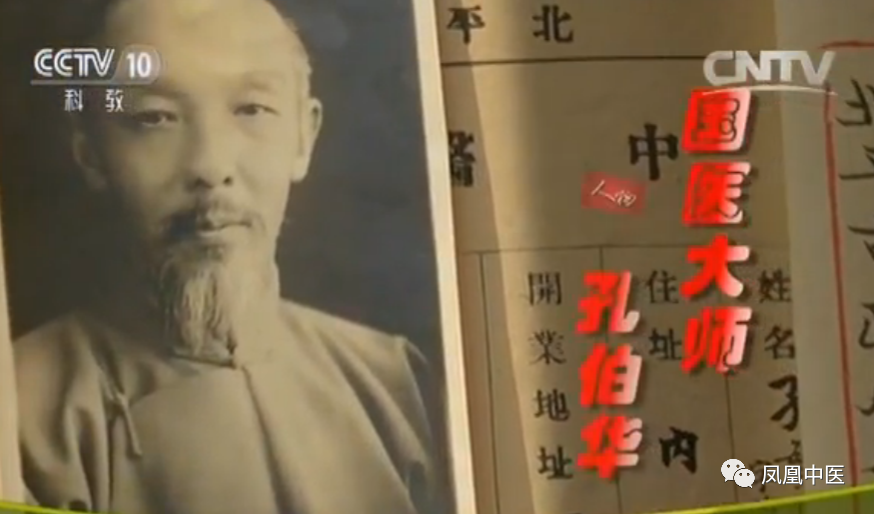 CCTV 10
科教
CNTV
北平
中醫
国医大师
人物
孔伯华
姓名
住址
開業地址
内
孔
北平
凤凰中医